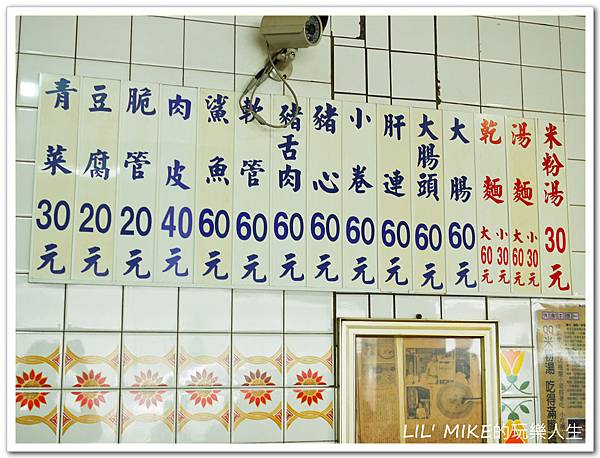 米粉湯 30元
湯麵 大60元 小30元
乾麵 大60元 小30元
大腸 60元
大腸頭 60元
肝連 60元
小卷 60元
豬心 60元
豬舌肉 60元
軟管 60元
鯊魚 60元
肉皮 40元
脆管 20元
豆腐 20元
青菜 30元
米粉湯 吃得滿
LIL' MIKE的玩樂人生